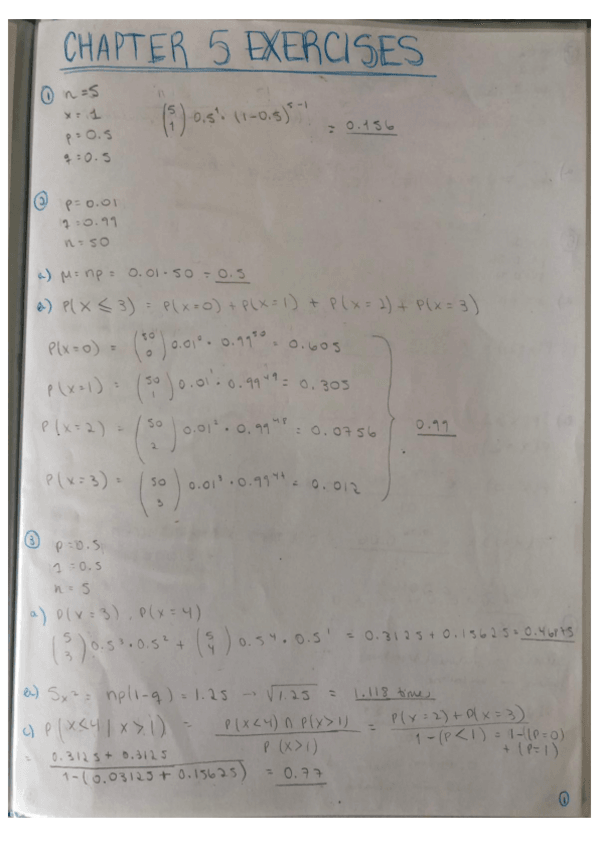 CHAPTER 5 EXERCISES
① n=5
x=1
p=0.5
q=0.5
(5 1) 0.5¹ · (1-0.5)⁵⁻¹ = 0.156
② p=0.01
q=0.99
n=50
a) μ=np = 0.01·50 = 0.5
b) P(X≤3) = P(x=0) + P(x=1) + P(x=2) + P(x=3)
P(x=0) = (50 0) 0.01⁰ · 0.99⁵⁰ = 0.605
P(x=1) = (50 1) 0.01¹ · 0.99⁴⁹ = 0.305
P(x=2) = (50 2) 0.01² · 0.99⁴⁸ = 0.0756
0.99
P(x=3) = (50 3) 0.01³ · 0.99⁴⁷ = 0.012
③ p=0.5
q=0.5
n=5
a) P(x=3), P(x=4)
(5 3) 0.5³·0.5² + (5 4) 0.5⁴·0.5¹ = 0.3125+0.15625=0.46875
b) Sx² = np(1-q)=1.25 → √1.25 = 1.118 times
c) P(x<4|x>1) = P(x<4) ∩ P(x>1) / P(x>1) = P(x=2)+P(x=3) / 1-(P<1) = 1-(P=0) + (P=1)
= 0.3125+0.3125 / 1-(0.03125+0.15625) = 0.77
①